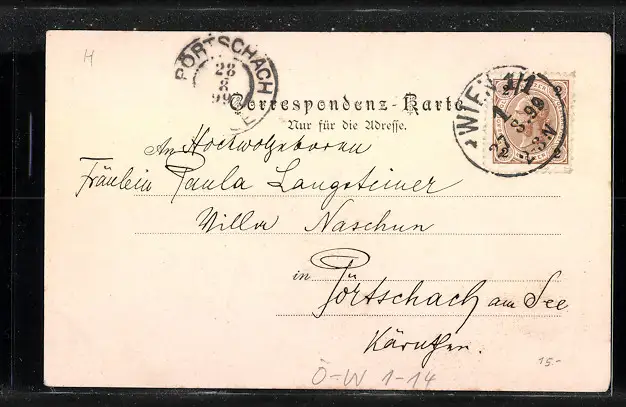 H
PÖRTSCHACH
28
8
99
Correspondenz-Karte
Nur für die Adresse.
WIEN 1/1
27. 8. 99
2-3N
2 2
An Hochwolgeboren
Fräulein Paula Langsteiner
Villa Naschun
in Pörtschach am See
Kärnthen.
15.-
Ö-W 1-14